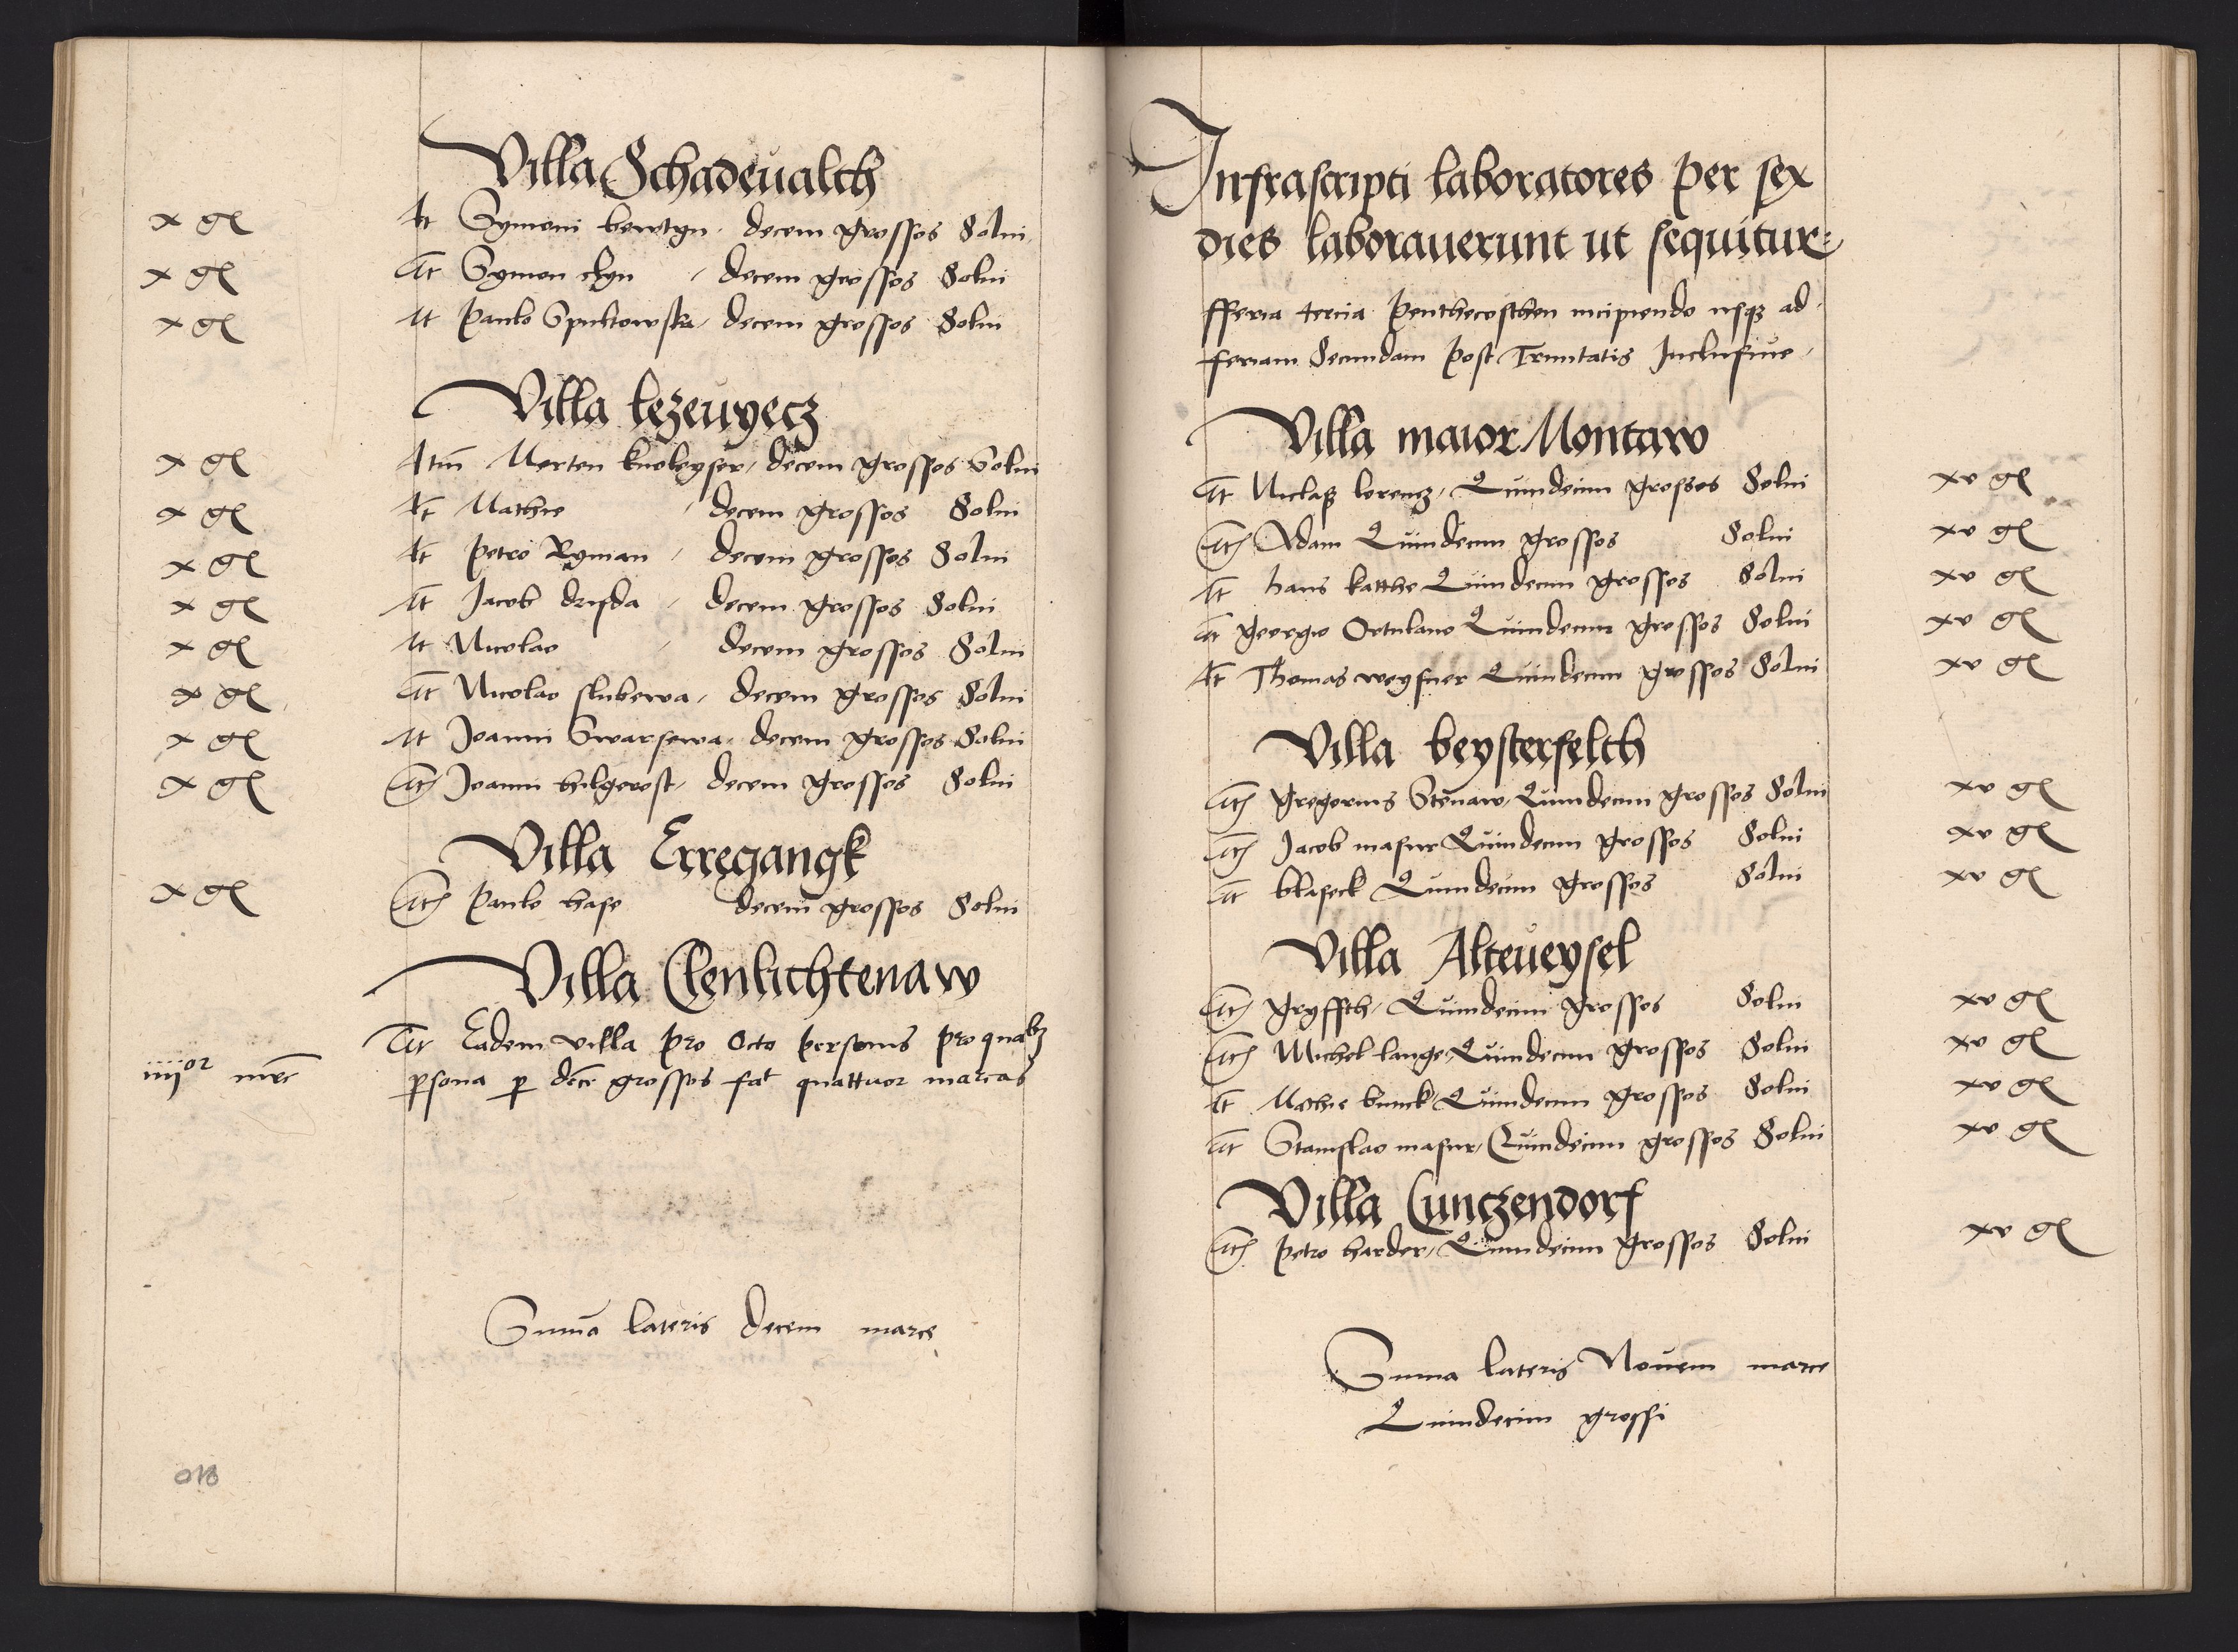 Villa Schadeualth
x gl It Symoni bewtyn . decem grossos Solui
x gl It Symon chyn / decem grossos Solui
x gl It Paulo Spuktowska / decem grossos Solui
Villa lezeuyecz
x gl Itm̄ Merten knobeyser / decem grossos Solui
x gl It Mathie / decem grossos Solui
x gl It Petro Ryman / decem grossos Solui
x gl It Jacob drusda / decem grossos Solui
x gl It Nicolao / decem grossos Solui
x gl It Nicolao slubewa / decem grossos Solui
x gl It Joanni Swarsewa . decem grossos Solui
x gl It Joanni hilgerost / decem grossos Solui
Villa Erregangk
x gl It Paulo hase decem grossos Solui
Villa Clenlichtenaw
It Eadem villa pro Octo personis pro qualꝫ
iiijor mrc ꝑsona ꝑ dece grossos fat quattuor marcas
Sum̄a lateris decem marce
Infrascripti laboratores per sex
dies laborauerunt ut sequitur
fferia tercia Penthecosthen incipiendo usqꝫ ad
feriam Secundam post Trinitatis Inclusiue
Villa maior Montaw
It Niclaß lorencz / Quindecim grossos Solui xv gl
It Adam Quindecim grossos Solui xv gl
It hans katthe Quindecim grossos Solui xv gl
It georgio Ortulano Quindecim grossos Solui xv gl
It Thomas weysner Quindecim grossos Solui xv gl
Villa beysterfelth
It gregorius Stenaw / Quindecim grossos Solui xv gl
It Jacob masur Quindecim grossos Solui xv gl
It blaseck Quindecim grossos Solui xv gl
Villa Alteueysel
It gryffth / Quindecim grossos Solui xv gl
It Michel lange / Quindecim grossos Solui xv gl
It Mathie bunck / Quindecim grossos Solui xv gl
It Stanislao masur / Quindecim grossos Solui xv gl
Villa Cunczendorf
It petro harder / Quindecim grossos Solui xv gl
Suma lateris Nouem marce
Quindecim grossi